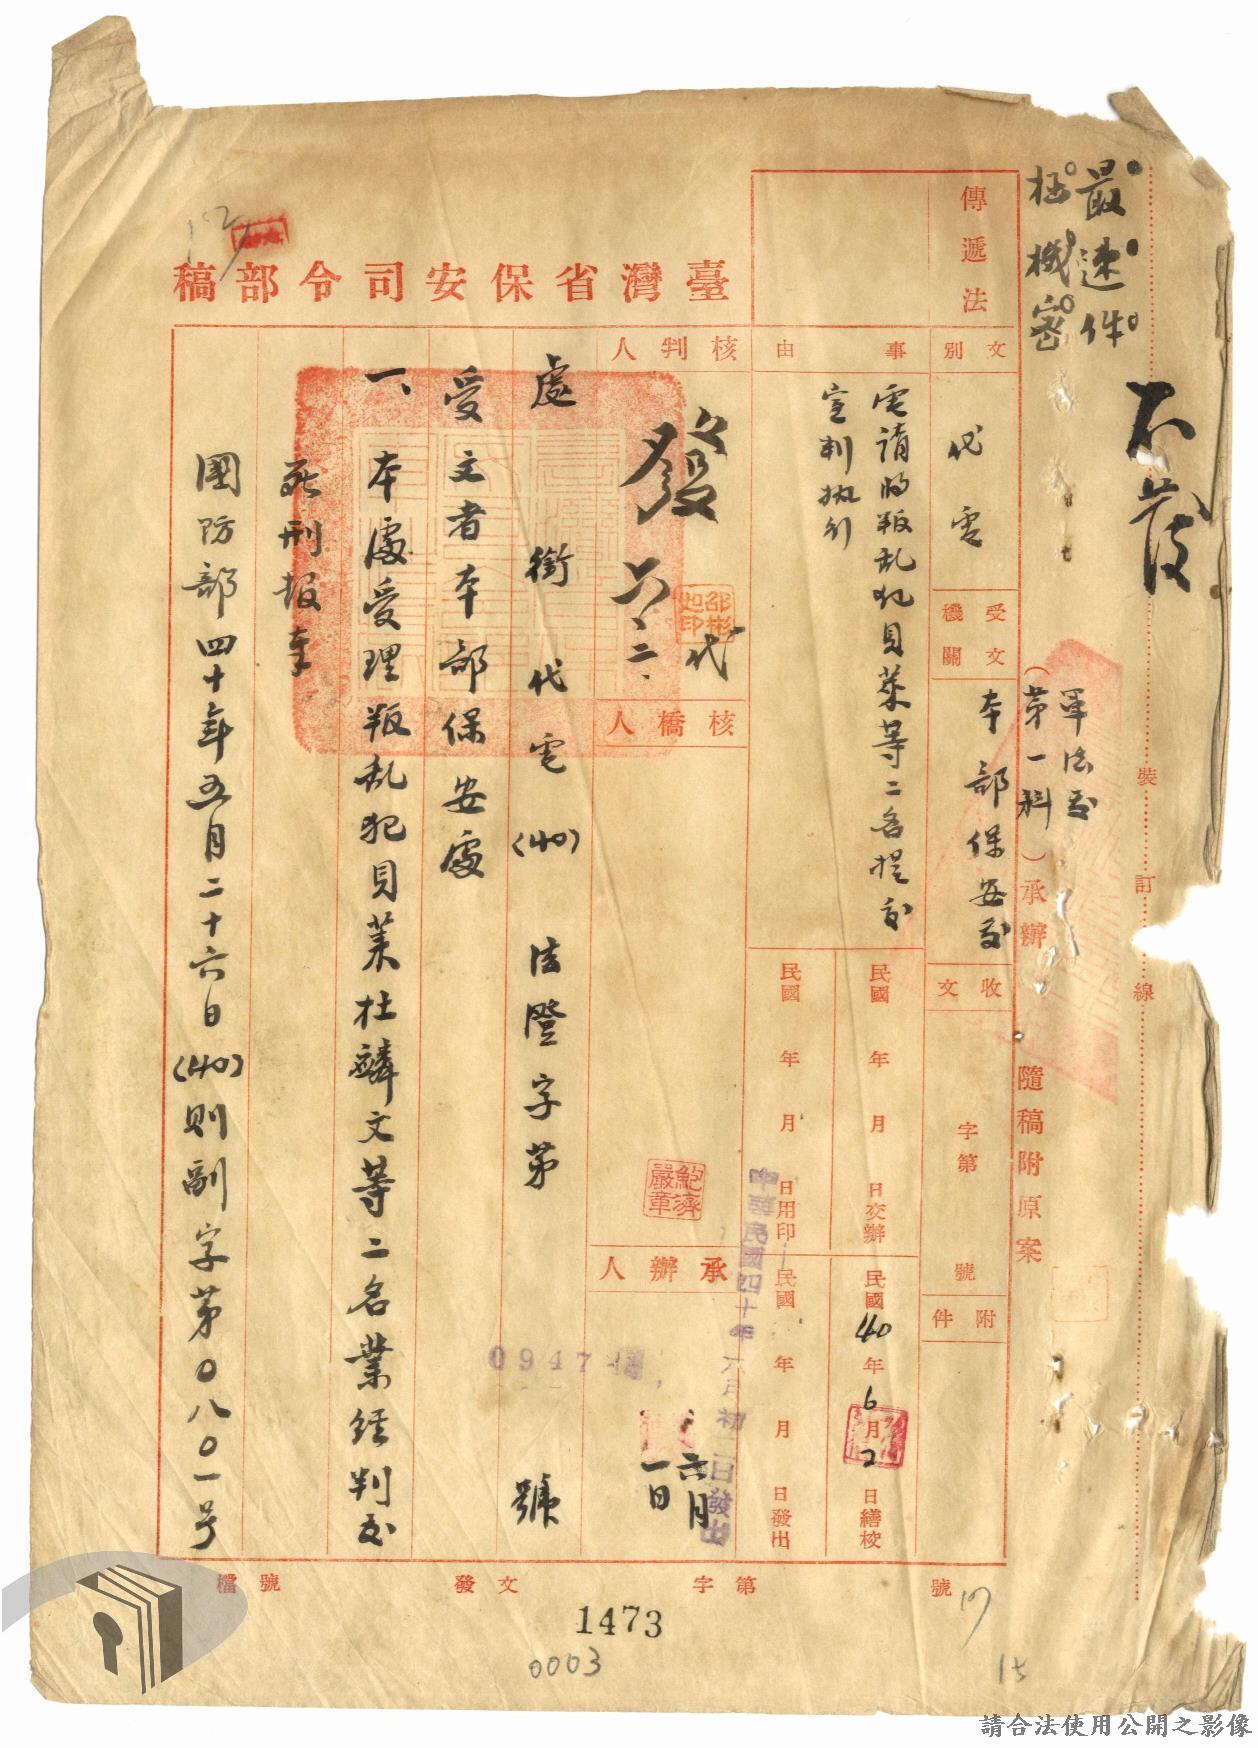 最速件
極機密
不發
裝訂線
軍法處
（第一科）承辦
隨稿附原案
臺灣省保安司令部稿
傳遞法
文別
代電
受文機關
本部保安處
收文
字第
號
附件
事由
電請將叛乱犯貝萊等二名提交
宣判執行
民國 年 月 日交辦
民國40年6月2日繕校
民國 年 月 日用印
民國 年 月 日發出
中華民國四十年六月初二日發出
核判人
發
代
六、二、
邵彬如印
核稿人
鮑濟嚴章
承辦人
六月
一日
0947
處銜代電(40)法澄字第 號
受文者本部保安處
一、本處受理叛乱犯貝萊杜麟文等二名業經判處
死刑報奉
國防部四十年五月二十六日(40)則副字第0八0一号
檔號
發文
字第
號
1473
0003
15
請合法使用公開之影像